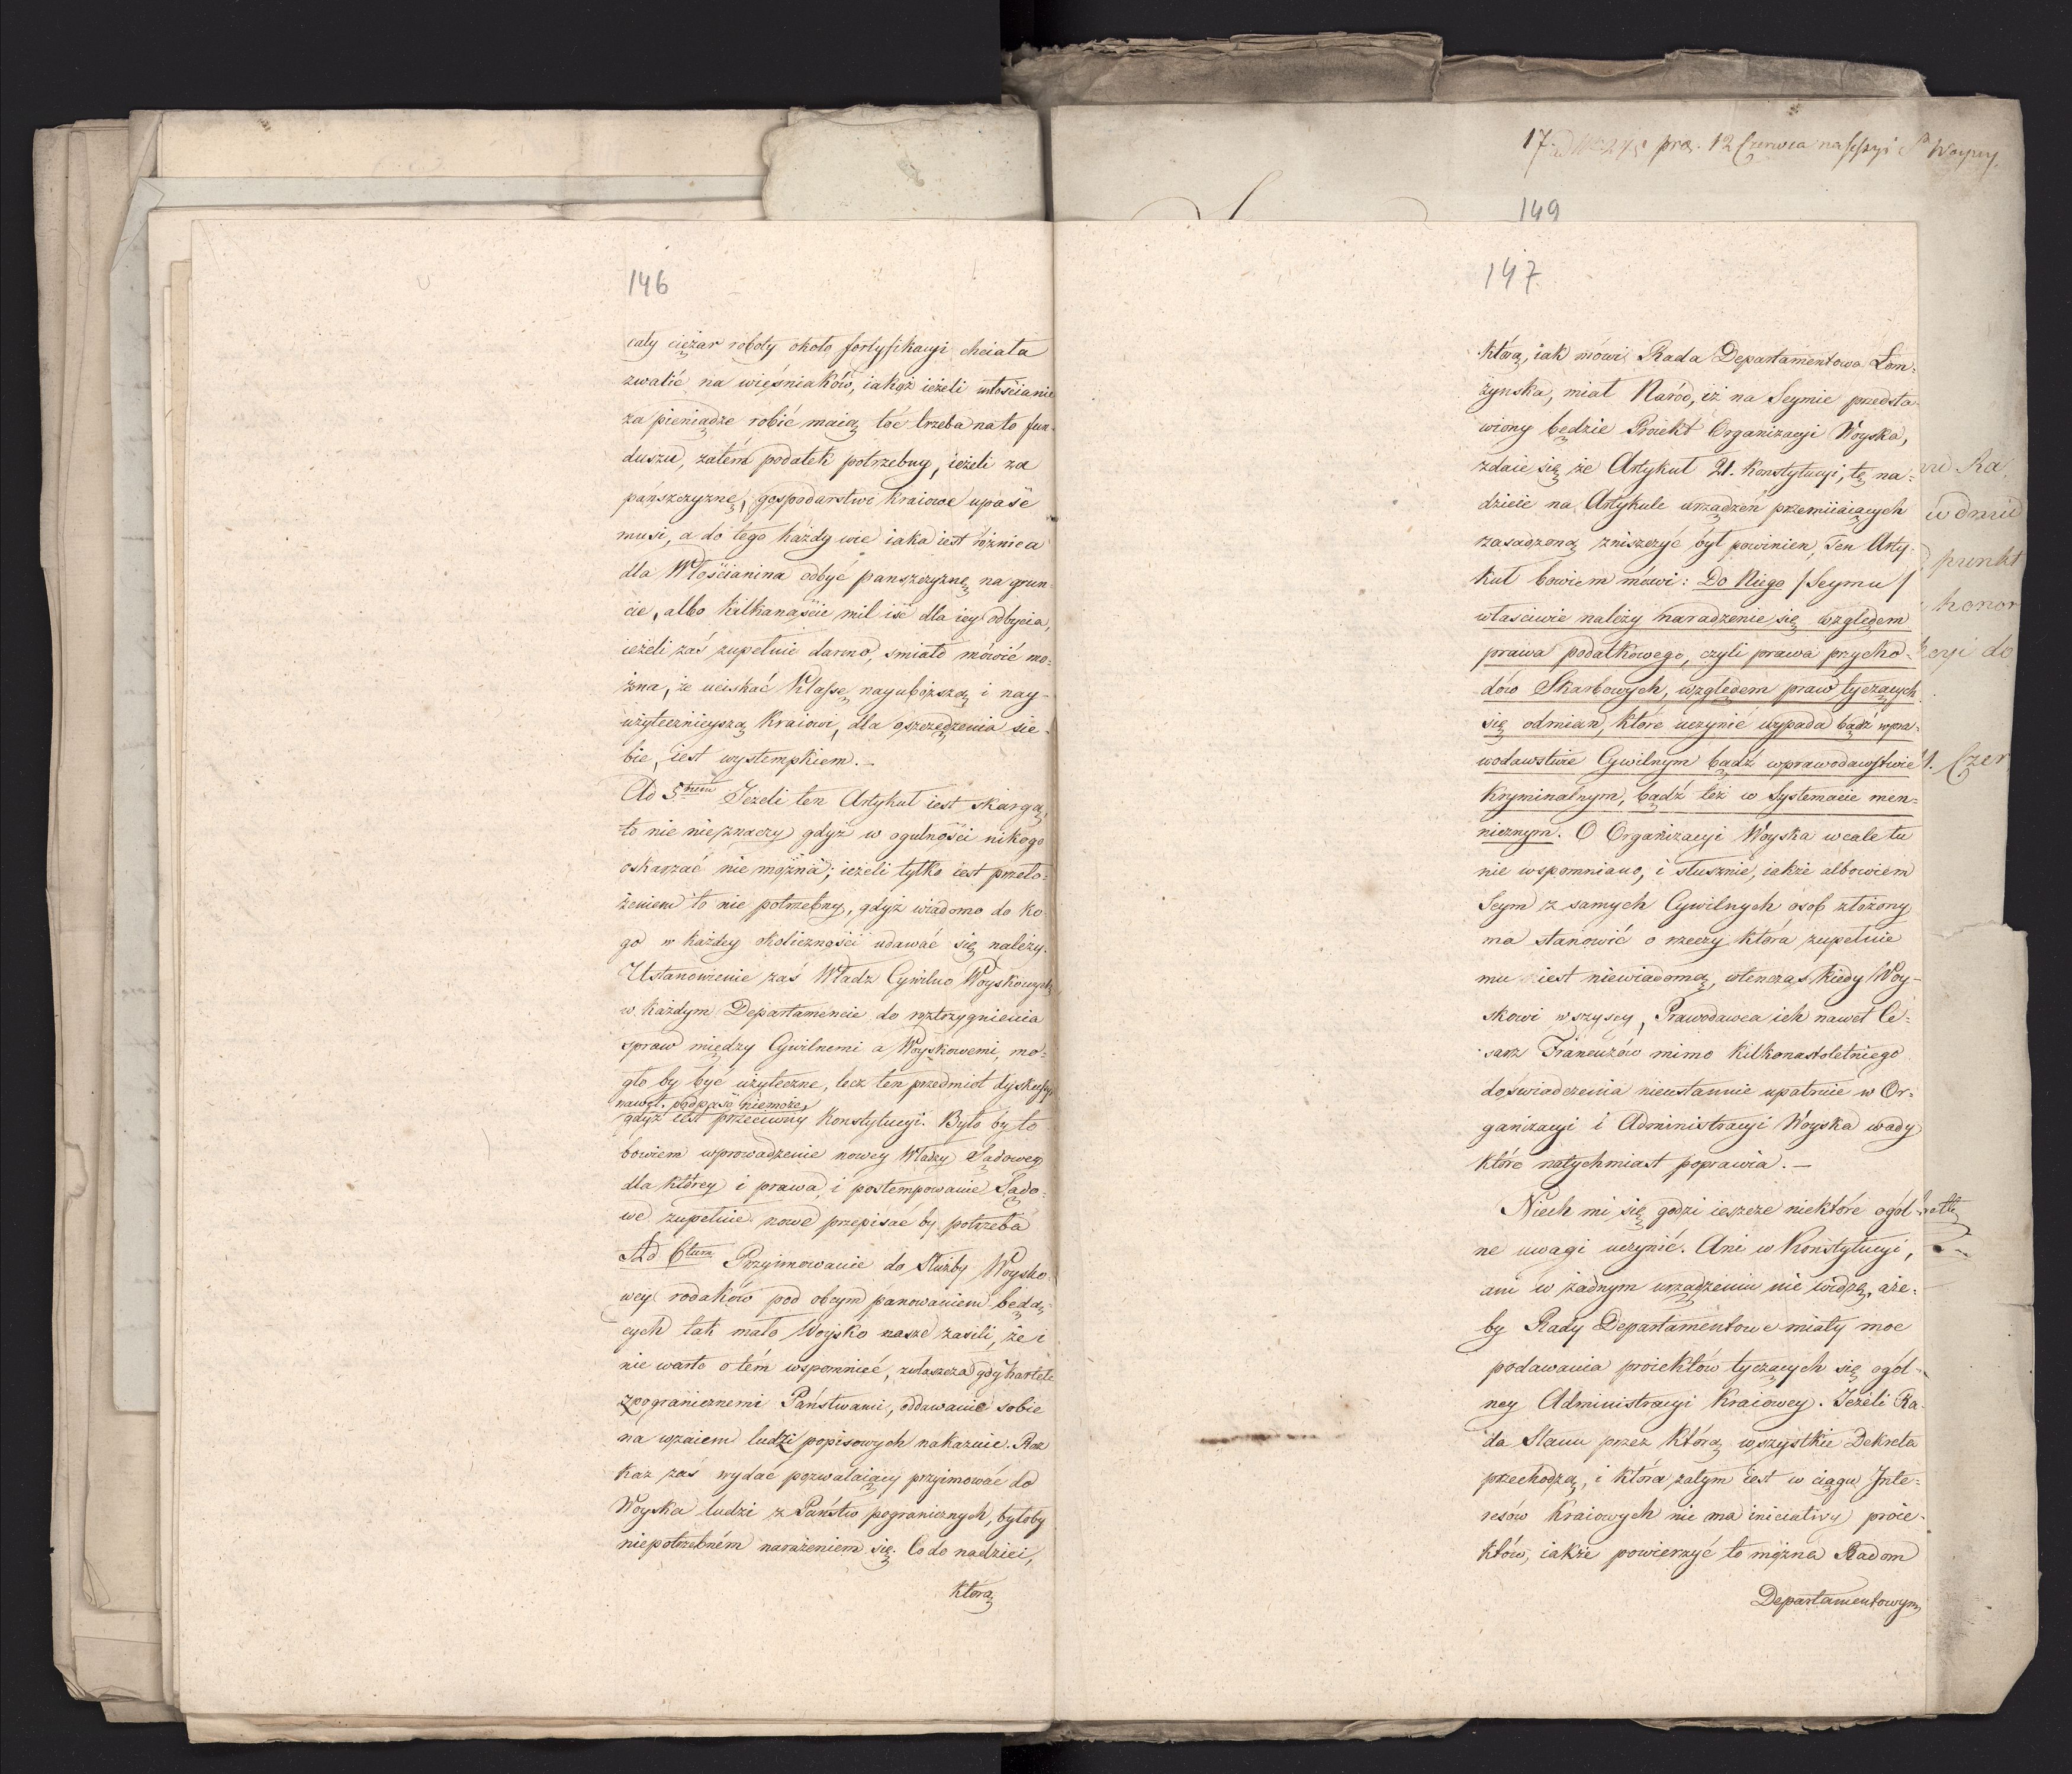 146
cały ciężar roboty około fortyfikacyi chciała
zwalić na wieśniaków, iakoż ieżeli włościanie
za pieniądze robić maią toć trzeba na to fun-
duszu, zatém podatek potrzebny, ieżeli za
pańszczyznę, gospodarstwo kraiowe upaść
musi, a do tego każdy wie iaka iest różnica
dla Włościanina odbyć panszczyznę na grun-
cie, albo kilkanaście mil iść dla iey odbycia,
ieżeli zaś zupełnie darmo, smiało mówić mo-
żna, że uciskać Klassę nayuboższą i nay-
użytecznieyszą Kraiowi, dla oszczędzenia sie-
bie, iest wystempkiem. –
Ad 5tum Jeżeli ten Artykuł iest skargą,
to nic nieznaczy gdyż w ogulności nikogo
oskarzać nie można; ieżeli tylko iest przeło-
żeniem to nie potrzebny, gdyż wiadomo do ko
go w każdey okoliczności udawać się należy.
Ustanowienie zaś Władz Cywilno Woyskowych
w każdym Departamencie do roztrzygnienia
spraw między Cywilnemi a Woyskowemi, mo-
gło by być użyteczne, lecz ten przedmiot dyskussyi
nawet podpaść niemoże,
gdyż iest przeciwny Konstytucyi. Było by to
bowiem wprowadzenie nowey Władzy Sądowey
dla którey i prawa, i postempowanie Sądo-
we zupełnie nowe przepisać by potrzeba
Ad 6tum Przyimowanie do Służby Woysko-
wey rodaków pod obcym panowaniem będą-
cych tak mało Woysko nasze zasili, że i
nie warto o tém wspomnieć, zwłaszcza gdy Kartele
z pogranicznemi Państwami, oddawanie sobie
na wzaiem ludzi popisowych nakazuie. Roz
kaz zaś wydać pozwalaiący przyimować do
Woyska ludzi z Państw pogranicznych, byłoby
niepotrzebném narażeniem się. Co do nadziei,
którą
17. prez. 12 Czerwca na Sessyi
149
147.
którą, iak mówi Rada Departamentowa Łom-
żynska, miał Naród, iż na Seymie przedsta-
wiony będzie Proiekt Organizacyi Woyska,
zdaie się że Artykuł 21. Konstytucyi, tę na-
dzieię na Artykule urządzeń przemiiaiących
zasadzoną zniszczyć był powinien, Ten Arty-
kuł bowiem mówi: Do Niego /Seymu/
właściwie należy naradzenie się względem
prawa podatkowego, czyli prawa przycho-
dów Skarbowych, względem praw tyczących
się odmian, które uczynić wypada bądź w pra-
wodawstwie Cywilnym bądź w prawodawstwie
Kryminalnym, bądź też w Systemacie men-
nicznym. O Organizacyi Woyska wcale tu
nie wspomniano, i słusznie, iakże albowiem
Seym z samych Cywilnych osób złożony
ma stanowić o rzeczy która zupełnie
mu iest niewiadomą, wtenczas kiedy Woy-
skowi wszyscy, Prawodawca ich nawet Ce-
sarz Francuzów mimo kilkonastoletniego
doświadczenia nieustannie upatruie w Or-
ganizacyi i Administracyi Woyska wady
które natychmiast poprawia. –
Niech mi się godzi ieszcze niektóre ogól
ne uwagi uczynić. Ani w Konstytucyi,
ani w żadnym urządzeniu nie widzę, aże-
by Rady Departamentowe miały moc
podawania proiektów tyczących się ogól-
ney Administracyi Kraiowey. Jeżeli Ra-
da Stanu przez którą wszystkie Dekreta
przechodzą, i która zatym iest w ciągu Inte-
resów Kraiowych nie ma iniciativy proie-
któw, iakże powierzyć to można Radom
Departamentowym
punkt
honor
do
1. Czer